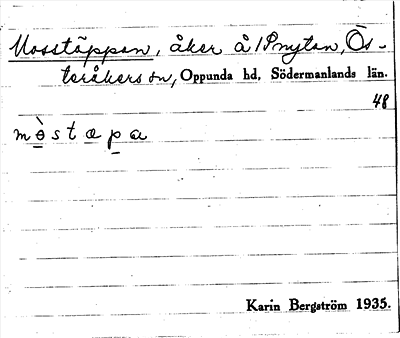 Mosstäppan, åker å Nytan, Ös-
teråkers sn, Oppunda hd, Södermanlands län.
48
mòstapa
Karin Bergström 1935.